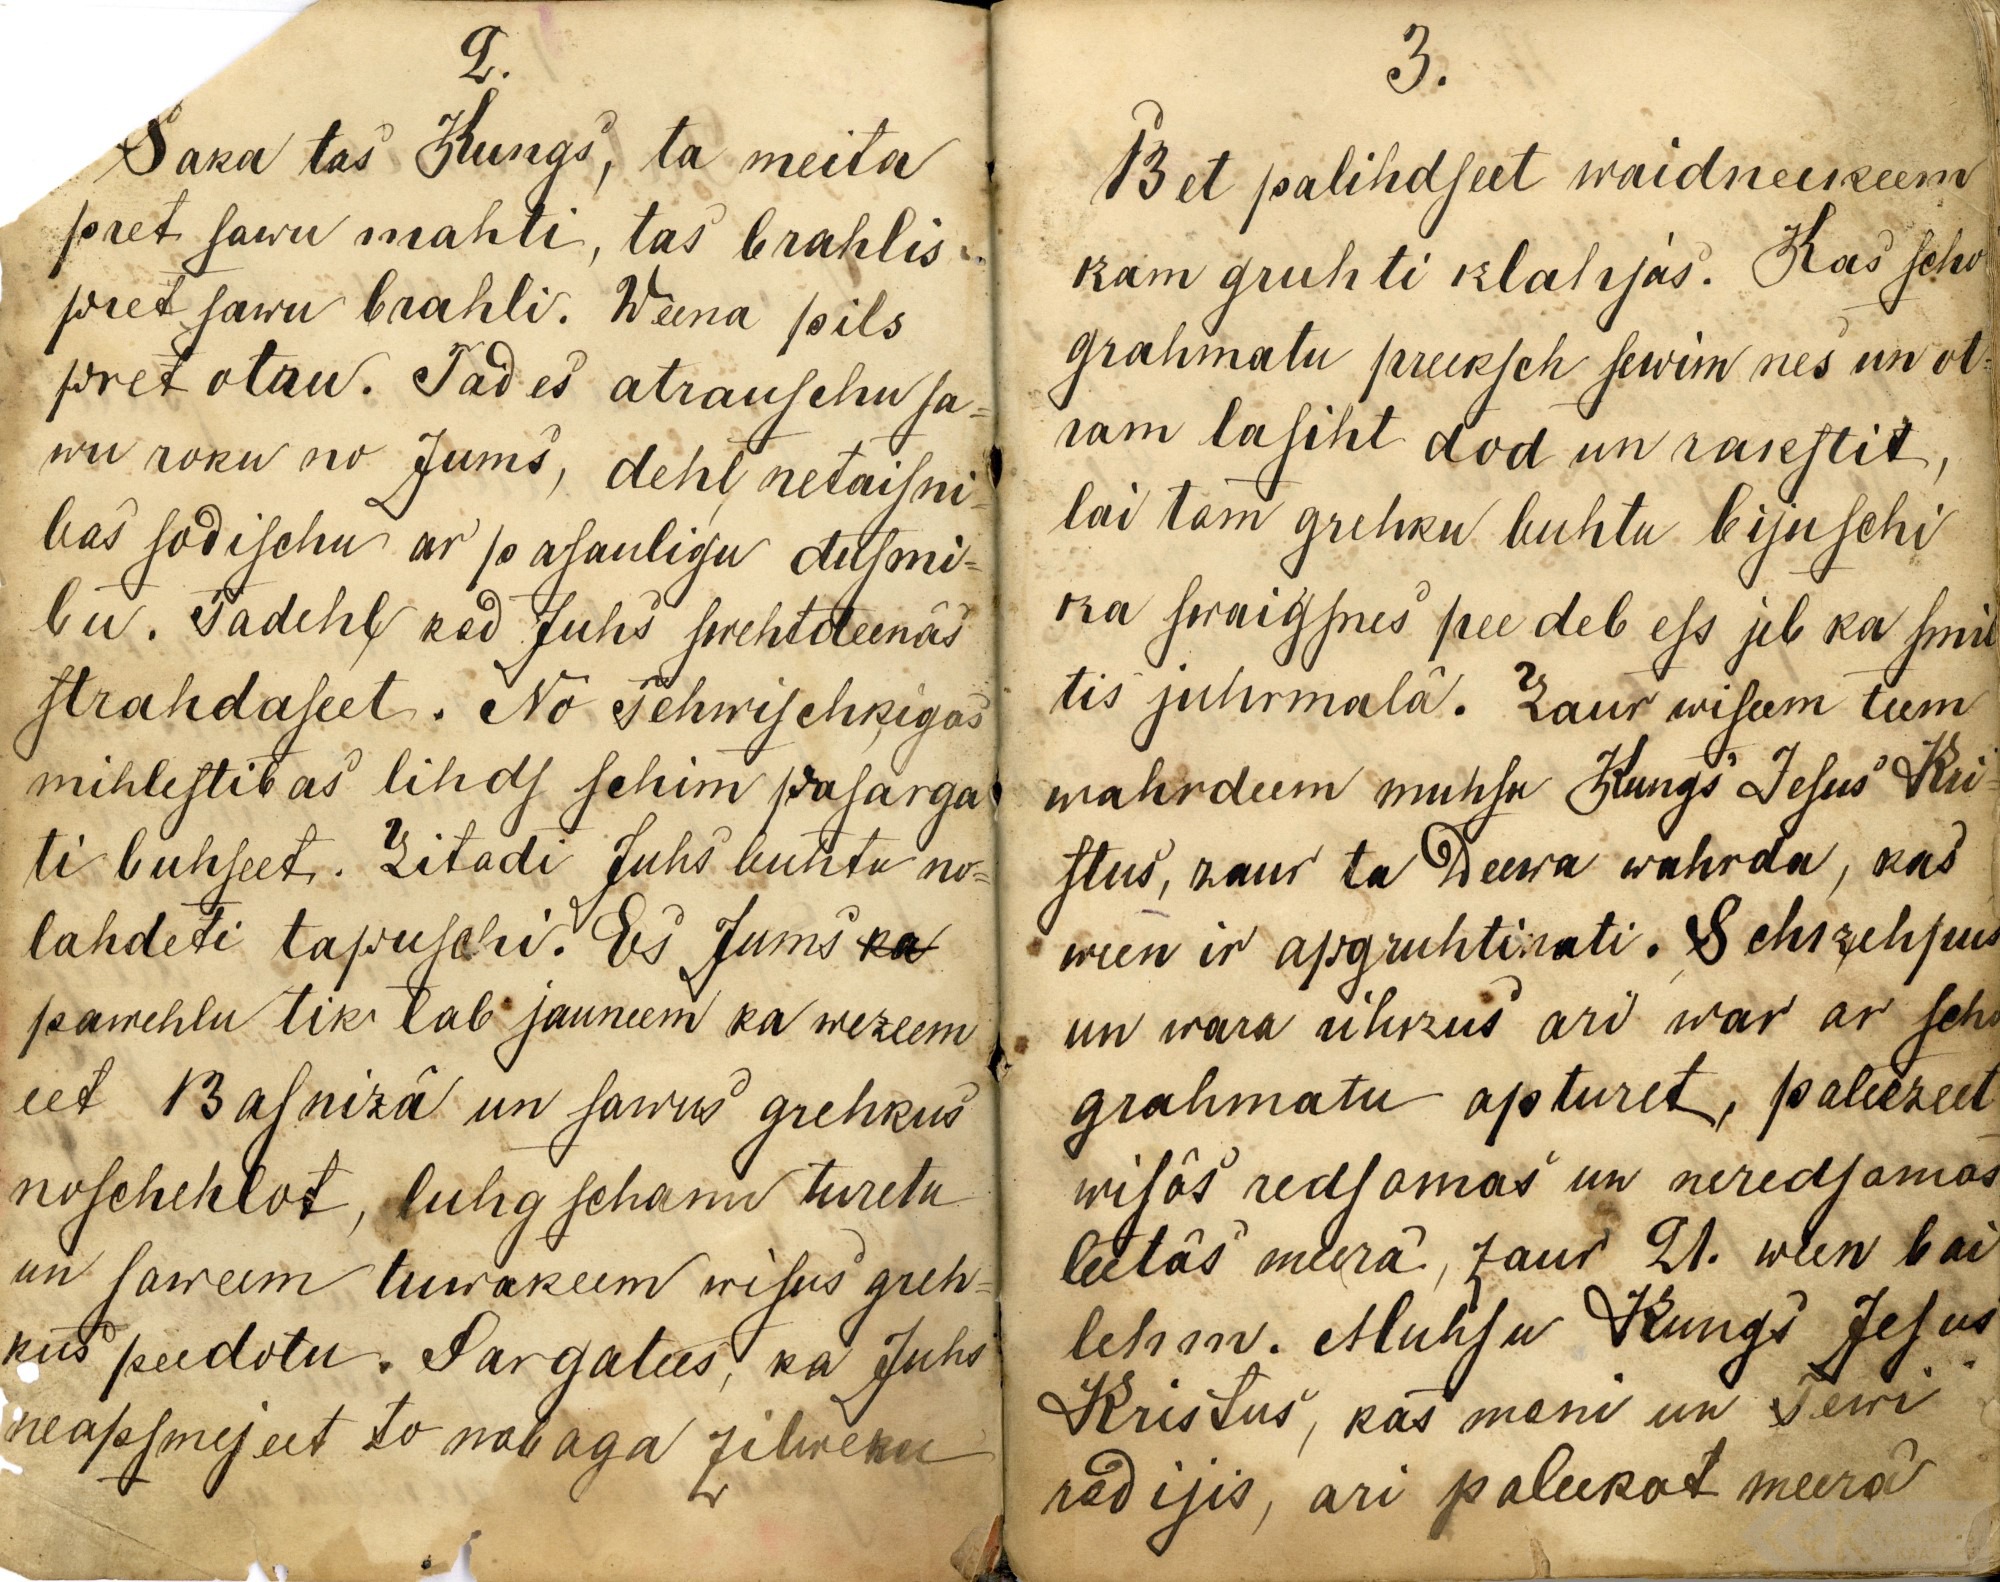 2.
Saka tas Kungs, ta meita
pret ſawu mahti, tas brahlis
pret ſawu brahli. Weena pils
pret otru. Tad es atrauſchu ſa=
wu roku no Jums, dehļ netaiſni=
bas ſodiſchu ar paſauligu duſmi=
bu. Tadehļ kad Juhs ſwehtdeenâs
ſtrahdaſeet. No Tehwiſchkigas
mihleſtibas lihdſ ſchim paſarga
ti buhſeet. Zitadi Juhs buhtu no=
lahdeti tapuſchi. Es Jums ka
pawehlu tik lab jauneem ka wezeem
eet Baſnizâ un ſawus grehkus
noſchehlot, luhgſchanu turetu
un ſaweem tuwakeem wiſus greh=
kus peedotu. Sargatees, ka Juhs
neapſmejeet to nabaga zilweku
3.
Bet palihdſeet waidneekeem
kam gruhti klahjas. Kas ſcho
grahmatu preekſch ſewim nes un ot=
ram laſiht dod un rakſtit,
lai tam grehku buhtu bijuſchi
ka ſwaigſnes pee debeſs jeb ka ſmil
tis juhrmalâ. Zaur wiſeem teem
wahrdeem muhſu Kungs Jeſus Kri=
ſtus, zaur ta Deewa wahrda, kas
ween ir apgruhtinati. Schkehpus
un wara uhkzus ari war ar ſcho
grahmatu apturet, paleezeet
wiſâs redſamas un neredſamas
leetâs meerâ, zaur 21. ween bai
lehm. Muhſu Kungs Jeſus
Kristus, kas mani un Tewi
radijis, ari paleekat meerâ